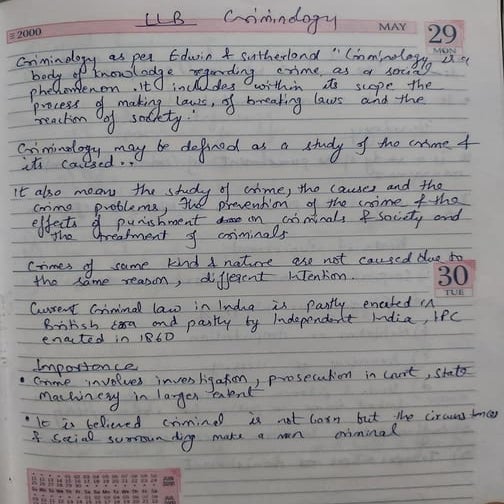 LLB Criminology
2000 MAY 29
MON
Criminology as per Edwin & Sutherland "Criminology is a
body of knowledge regarding crime, as a social
phenomenon. It includes within its scope the
process of making laws, of breaking laws and the
reaction of society."
Criminology may be defined as a study of the crime &
its caused..
It also means the study of crime, the causes and the
crime problems, The prevention of the crime & the
effects of punishment on criminals & society and
the treatment of criminals
Crimes of same kind & nature are not caused due to
the same reason, different Intention.
30
TUE
Current Criminal law in India is partly enacted in
British Era and partly by Independent India, IPC
enacted in 1860
Importance
• Crime involves investigation, prosecution in court, State
machinery in larger extent
• It is believed criminal is not born but the circumstances
& social surrounding make a man criminal